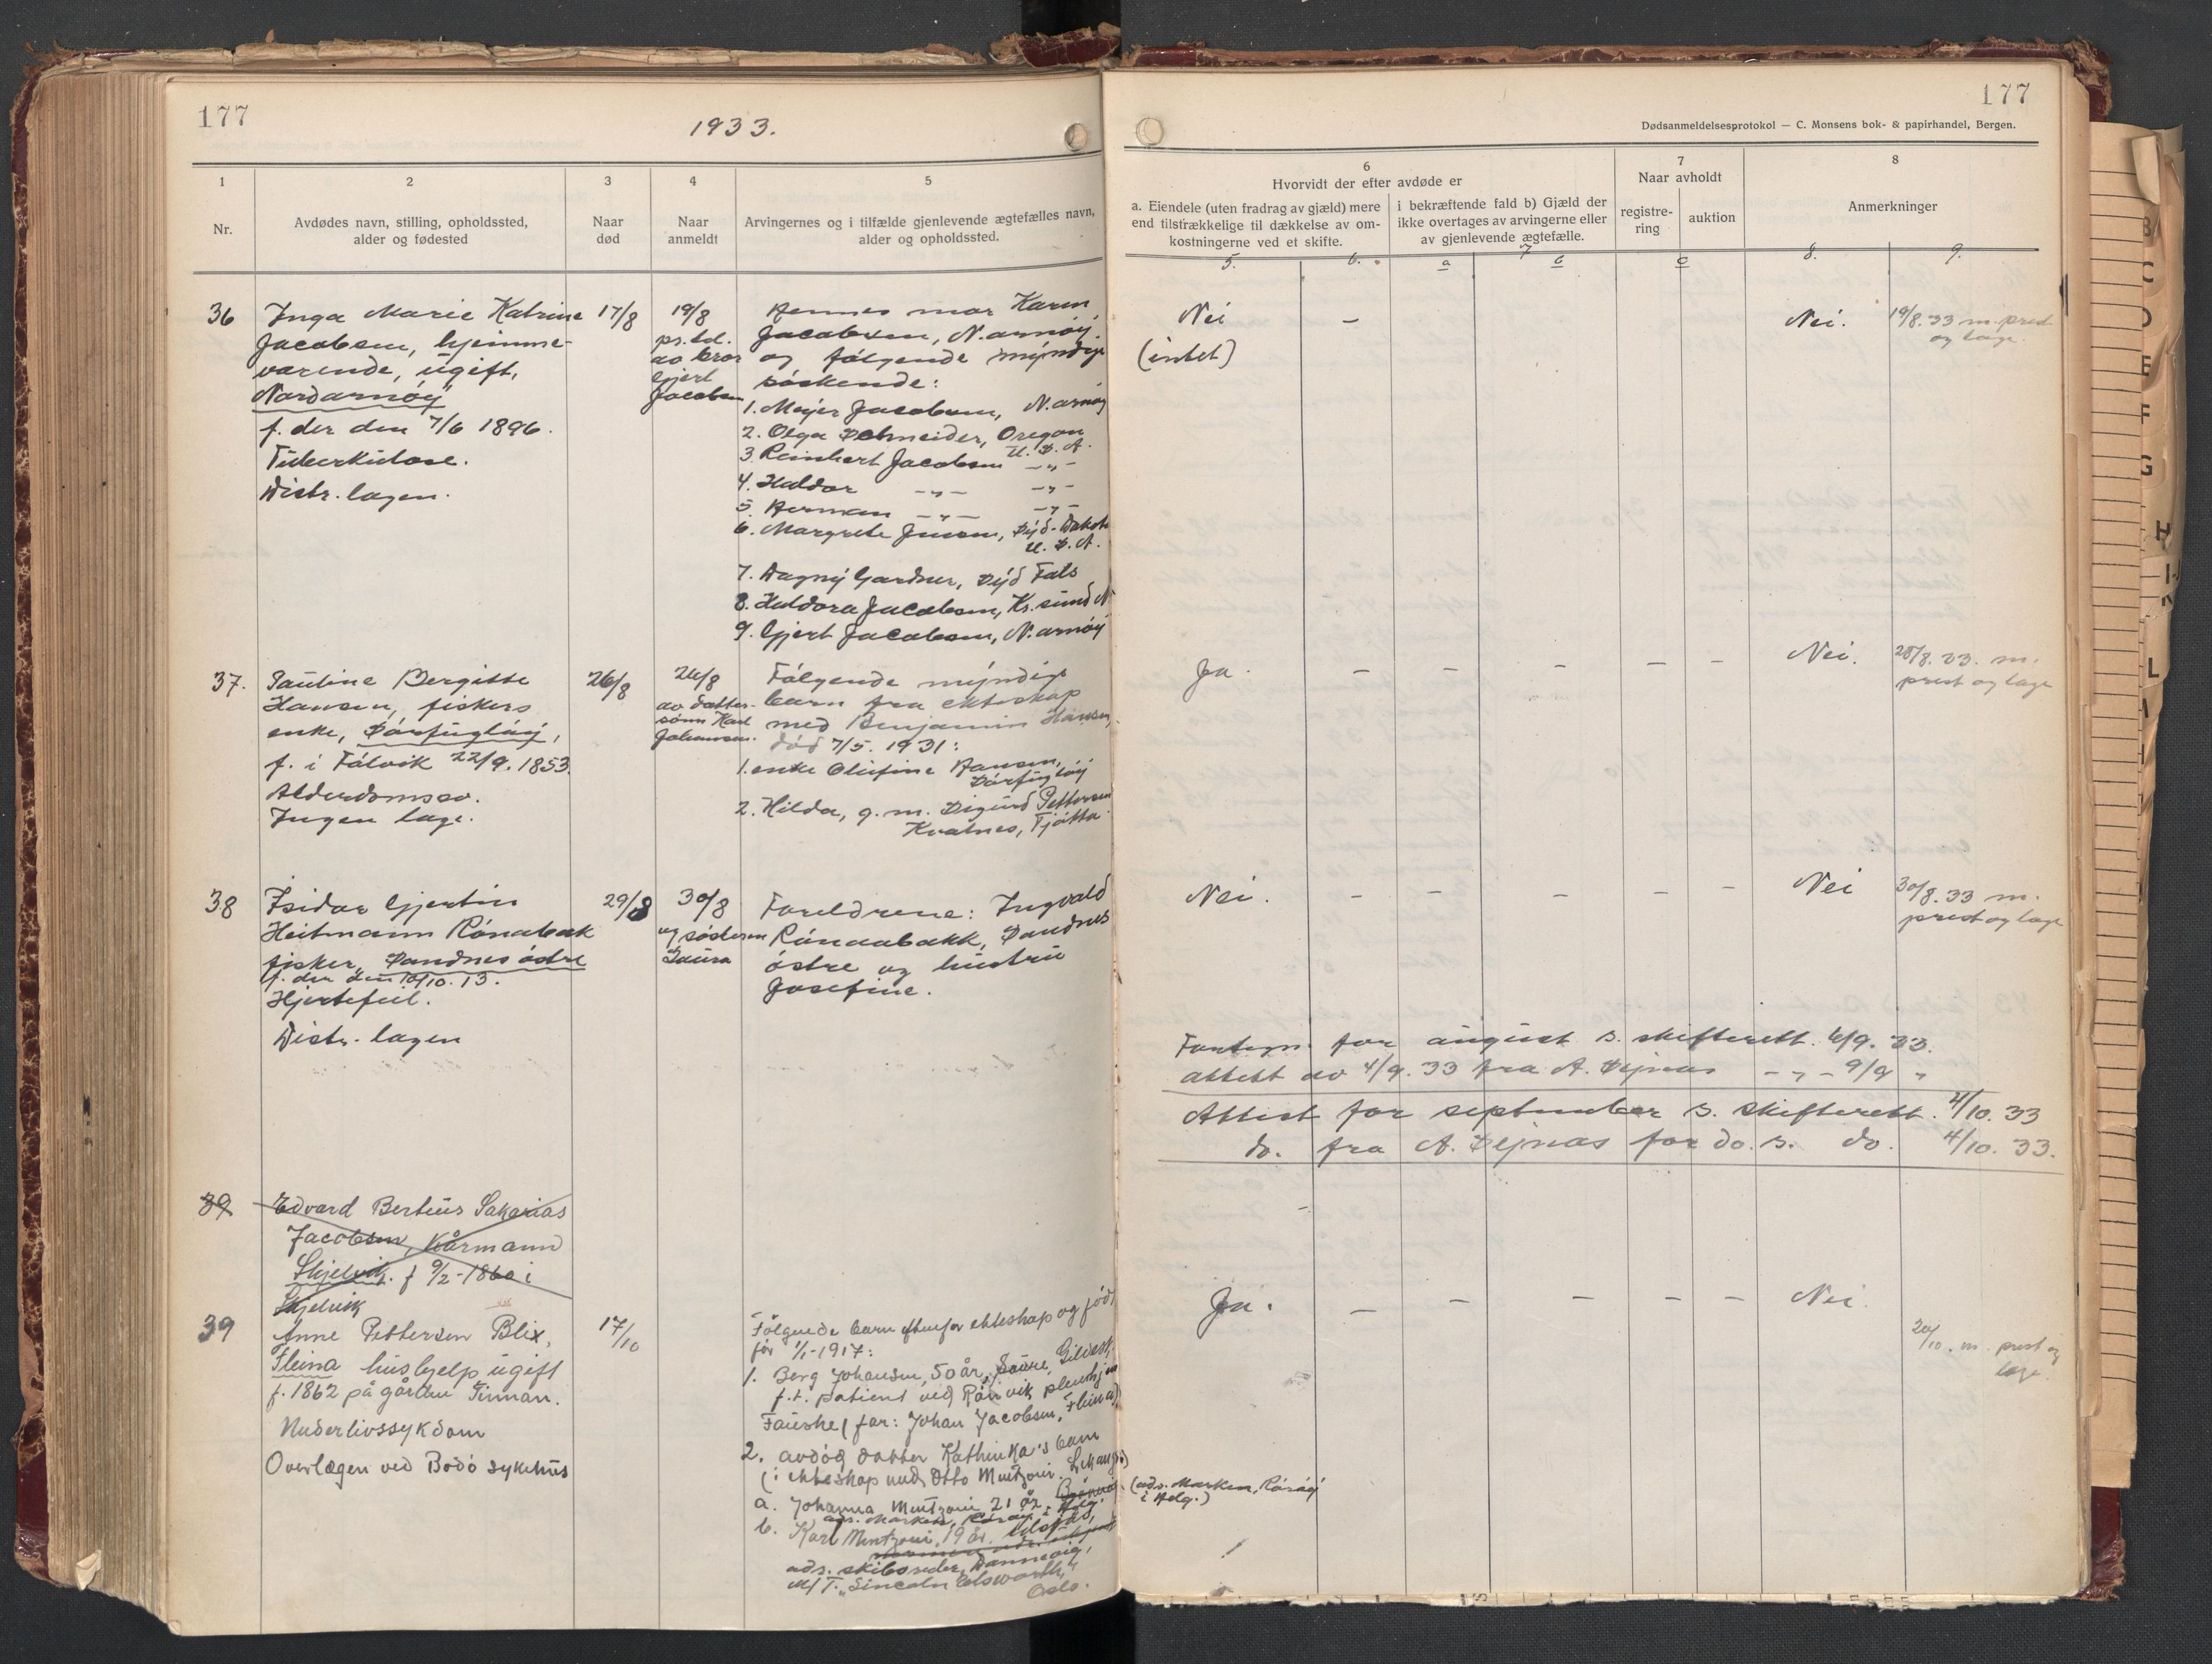 177
1933.
1
2
3
4
5
Nr.
Avdødes navn, stilling, opholdssted,
alder og fødested
Naar
død
Naar
anmeldt
Arvingernes og i tilfælde gjenlevende ægtefælles navn,
alder og opholdssted.
36
Inga Marie Katrine
Jacobsen, hjemme-
værende, ugift,
Nordarnøy
f. der den 7/6 1896.
Tuberkulose.
Distr. lægen.
17/8
19/8
pr. tel.
av bror
Gjert
Jacobsen
Hennes mor Karen
Jacobsen, N. arnøy.
og følgende myndige
søskende:
1. Meyer Jacobsen, N. arnøy
2. Olga Schneider, Oregon
U. S. A.
3. Reinhert Jacobsen -"-
4. Haldor -"- -"-
5. Herman -"- -"-
6. Margrete Jensen, Syd-Dakota
U. S. A.
7. Dagny Gardner, Syd Fals
8. Haldora Jacobsen, Kr. sund N
9. Gjert Jacobsen, N. arnøy
37.
Pauline Bergitte
Hansen, fiskers
enke, Sørfugløy,
f. i Følvik 22/9. 1853.
Alderdomssv.
Ingen læge.
26/8
26/8
av datter-
sønn Karl
Johansen.
Følgende myndige
barn fra ekteskap
med Benjamin Hansen,
død 7/5. 1931:
1. enke Olufine Hansen,
Sørfugløy
2. Hilda, g. m. Sigurd Pettersen
Kvalnes, Tjøtta.
38
Isidor Gjertin
Heitmann Rønabakk
fisker, Sandnes østre
f. der den 10/10. 13.
Hjertefeil.
Distr. lægen
29/8
30/8
av søsteren
Laura
Foreldrene: Ingvald
Rønaabakk, Sandnes
østre og hustru
Josefine.
39
Edvard Bertius Sakarias
Jacobsen, kårmann
Skjelvik. f 9/2-1860 i
Skjelvik
39
Anne Pettersen Blix,
Fleina hushjelp ugift
f. 1862 på gården Tinman.
Underlivssykdom
Overlægen ved Bodø sykehus
17/10
Følgende barn utenfor ekteskap og født
før 1/1-1917:
1. Berg Johansen, 50 år, Saura, Gildesk.
f.t. patient ved Rønvik pleiehjem
Fauske (far: Johan Jacobsen, Fleina)
2. avdød datter Kathinka's barn
(i ekteskap med Otto Mentzoni,
a. Johanna Mentzoni 21 år,
adr. Marken, Rørøy i Helg.
b. Karl Mentzoni, 19 år.
adr. skibsreder, Dannevig,
M/T. "Lincoln Elsworth,"
Oslo.
177
Dødsanmeldelsesprotokol — C. Monsens bok- & papirhandel, Bergen.
6
Hvorvidt der efter avdøde er
7
Naar avholdt
8
a. Eiendele (uten fradrag av gjæld) mere
end tilstrækkelige til dækkelse av om-
kostningerne ved et skifte.
i bekræftende fald b) Gjæld der
ikke overtages av arvingerne eller
av gjenlevende ægtefælle.
registre-
ring
auktion
Anmerkninger
5.
6.
a
7
c
8.
9.
Nei
(intet)
—
Nei.
19/8. 33 m. prest
og læge.
Ja.
— — — — —
Nei.
28/8. 33. m.
prest og læge
Nei.
— — — — —
Nei
30/8. 33 m.
prest og læge
Fortegn. for august s. skifterett. 6/9. 33.
attest av 4/9. 33 fra A. Sejnæs -"- 9/9 "
Attest for september s. skifterett. 4/10. 33
do. fra A. Sejnæs for do. s. do. 4/10. 33.
Ja.
— — — — —
Nei.
20/10. m. prest og
læge.
(adr. Marken, Rørøy
i Helg.)